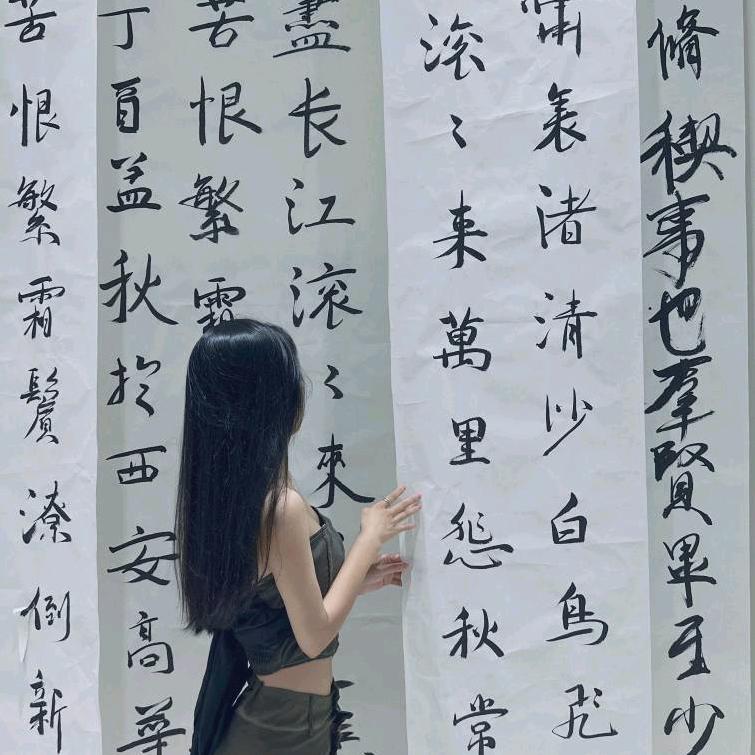 脩稧事也羣賢畢至少
嘯哀渚清沙白鳥飛
滚々来萬里悲秋常
盡长江滚々來
苦恨繁霜
丁酉孟秋扵西安高華
苦恨繁霜鬢潦倒新